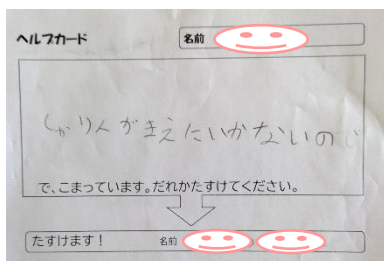 ヘルプカード
名前
しゃりんがまえにいかないので
で、こまっています。だれかたすけてください。
たすけます！ 名前